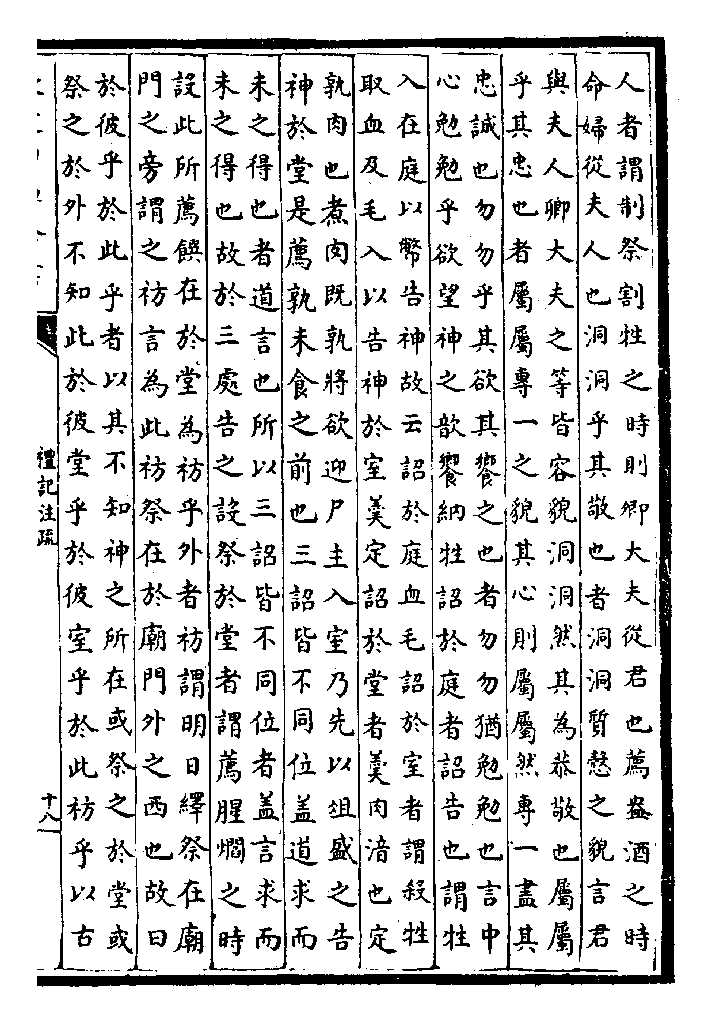 人者謂制祭割牲之時則卿大夫從君也薦盎酒之時
命婦從夫人也洞洞乎其敬也者洞洞質慤之貌言君
與夫人卿大夫之等皆容貌洞洞然其為恭敬也屬屬
乎其忠也者屬屬專一之貌其心則屬屬然專一盡其
忠誠也勿勿乎其欲其饗之也者勿勿猶勉勉也言中
心勉勉乎欲望神之歆饗納牲詔於庭者詔告也謂牲
入在庭以幣告神故云詔於庭血毛詔於室者謂殺牲
取血及毛入以告神於室羮定詔於堂者羮肉湆也定
孰肉也煮肉既孰將欲迎尸主入室乃先以俎盛之告
神於堂是薦孰未食之前也三詔皆不同位盖道求而
未之得也者道言也所以三詔皆不同位者盖言求而
未之得也故於三處告之設祭於堂者謂薦腥爓之時
設此所薦饌在於堂為祊乎外者祊謂明日繹祭在廟
門之旁謂之祊言為此祊祭在於廟門外之西也故曰
於彼乎於此乎者以其不知神之所在或祭之於堂或
祭之於外不知此於彼堂乎於彼室乎於此祊乎以古
禮記注疏
十八